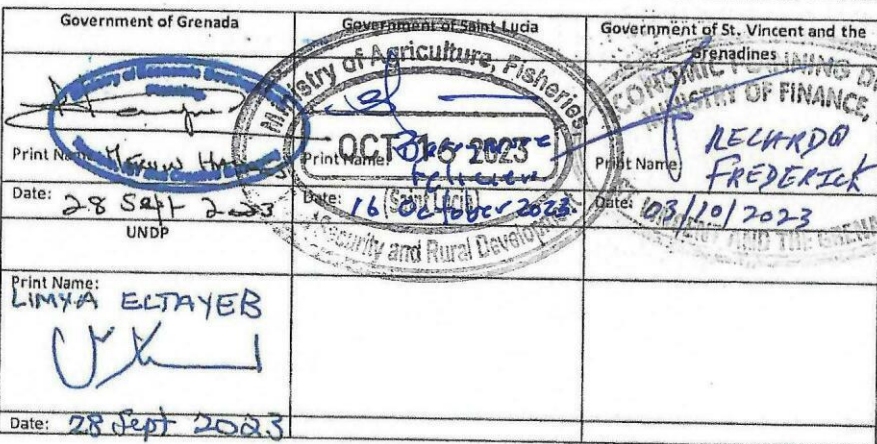 Government of Grenada
Government of Saint Lucia
Government of St. Vincent and the Grenadines
Ministry of Economic
Planning,
Ministry of Agriculture, Fisheries,
Security and Rural Development
OCT 16 2023
(Saint Lucia)
ECONOMIC PLANNING
MINISTRY OF FINANCE,
AND THE GRENA
Print Name:
Print Name:
Print Name:
RECARDO
FREDERICK
Date: 28 Sept 2023
Date: 16 October 2023
Date: 03/10/2023
UNDP
Print Name:
LIMYA ELTAYEB
Date: 28 Sept 2023